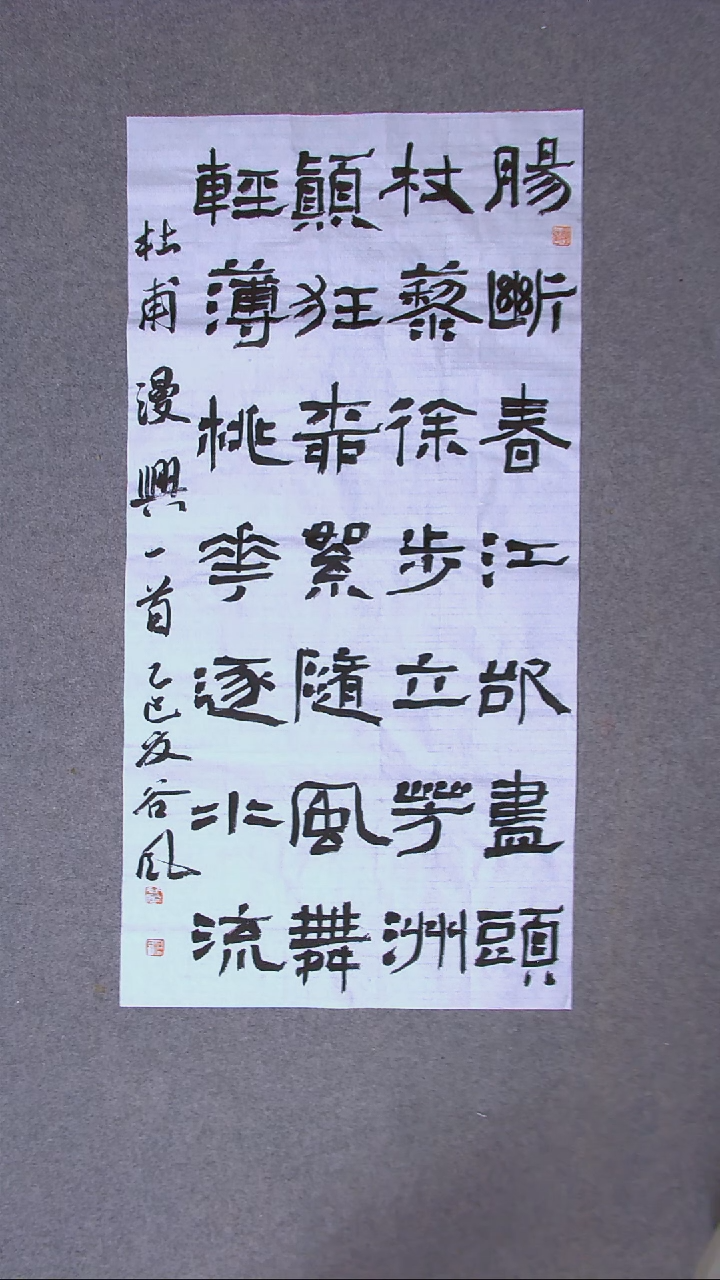 腸斷春江欲盡頭
杖藜徐步立芳洲
顛狂柳絮隨風舞
輕薄桃花逐水流
杜甫 漫興一首 乙巳夏谷风